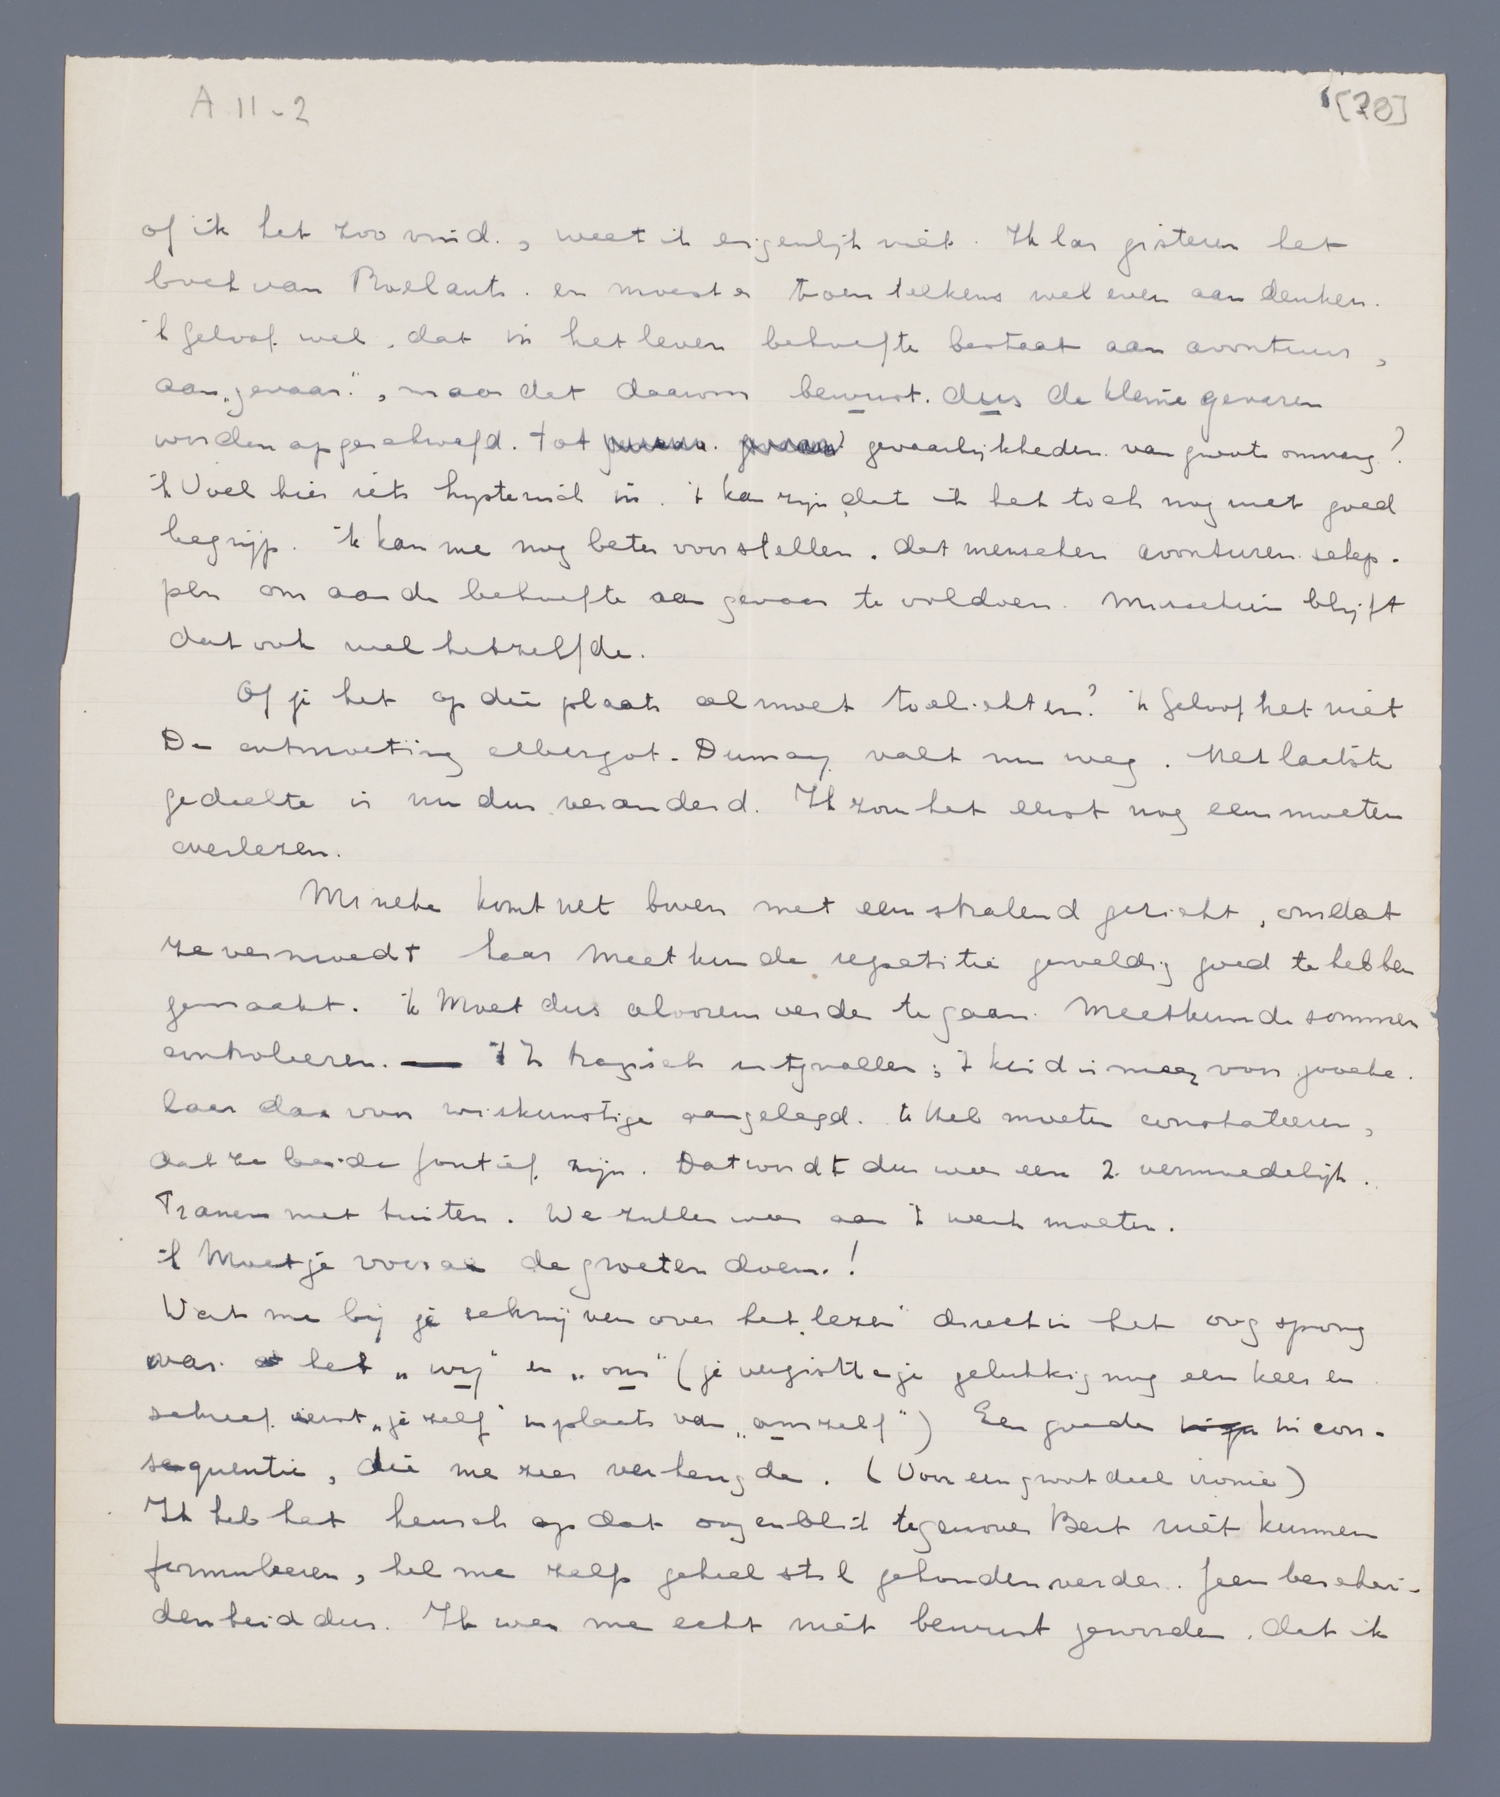 A 11-2
[78]
of ik het zoo vind, weet ik eigenlijk niet. Ik las gisteren het
boek van Roelants en moest er toen telkens wel even aan denken.
'k Geloof wel, dat in het leven behoefte bestaat aan avontuur,
aan „gevaar", maar dat daarom bewust dus de kleine gevaren
worden opgeschroefd tot gevaarlijkheden van groote omvang?
'k Voel hier iets hysterisch in. 't kan zijn dat ik het toch nog niet goed
begrijp. ik kan me nog beter voorstellen, dat menschen avonturen schep-
pen om aan de behoefte aan gevaar te voldoen. Misschien blijft
dat ook wel hetzelfde.
Of je het op die plaats al moet toelichten? 'k Geloof het niet
De ontmoeting elbergot-Dumay valt nu weg. Het laatste
gedeelte is nu dus veranderd. Ik zou het eerst nog eens moeten
overlezen.
Mineke komt net boven met een stralend gezicht, omdat
ze vermoedt haar meetkunde repetitie geweldig goed te hebben
gemaakt. ik Moet dus alvorens verder te gaan meetkunde sommen
controleeren. — 't Is tragisch uitgevallen; 't kind is meer voor gooche-
laar dan voor wiskunstige aangelegd. 'k Heb moeten constateeren,
dat ze beide foutief zijn. Dat wordt dus weer een 2 vermoedelijk.
Tranen met tuiten. We zullen weer aan 't werk moeten.
'k Moet je vooral de groeten doen!
Wat me bij je schrijven over het „lezen" direct in het oog sprong
was het „wij" en „ons" (je vergiste je gelukkig nog een keer en
schreef eerst „je zelf" in plaats van „ons zelf") Een goede incon-
sequentie, die me zeer verheugde. (Voor een groot deel ironie)
Ik heb het heusch op dat oogenblik tegenover Bert niet kunnen
formuleeren, heb me zelf geheel stil gehouden verder. Geen beschei-
denheid dus. Ik was me echt niet bewust geworden, dat ik